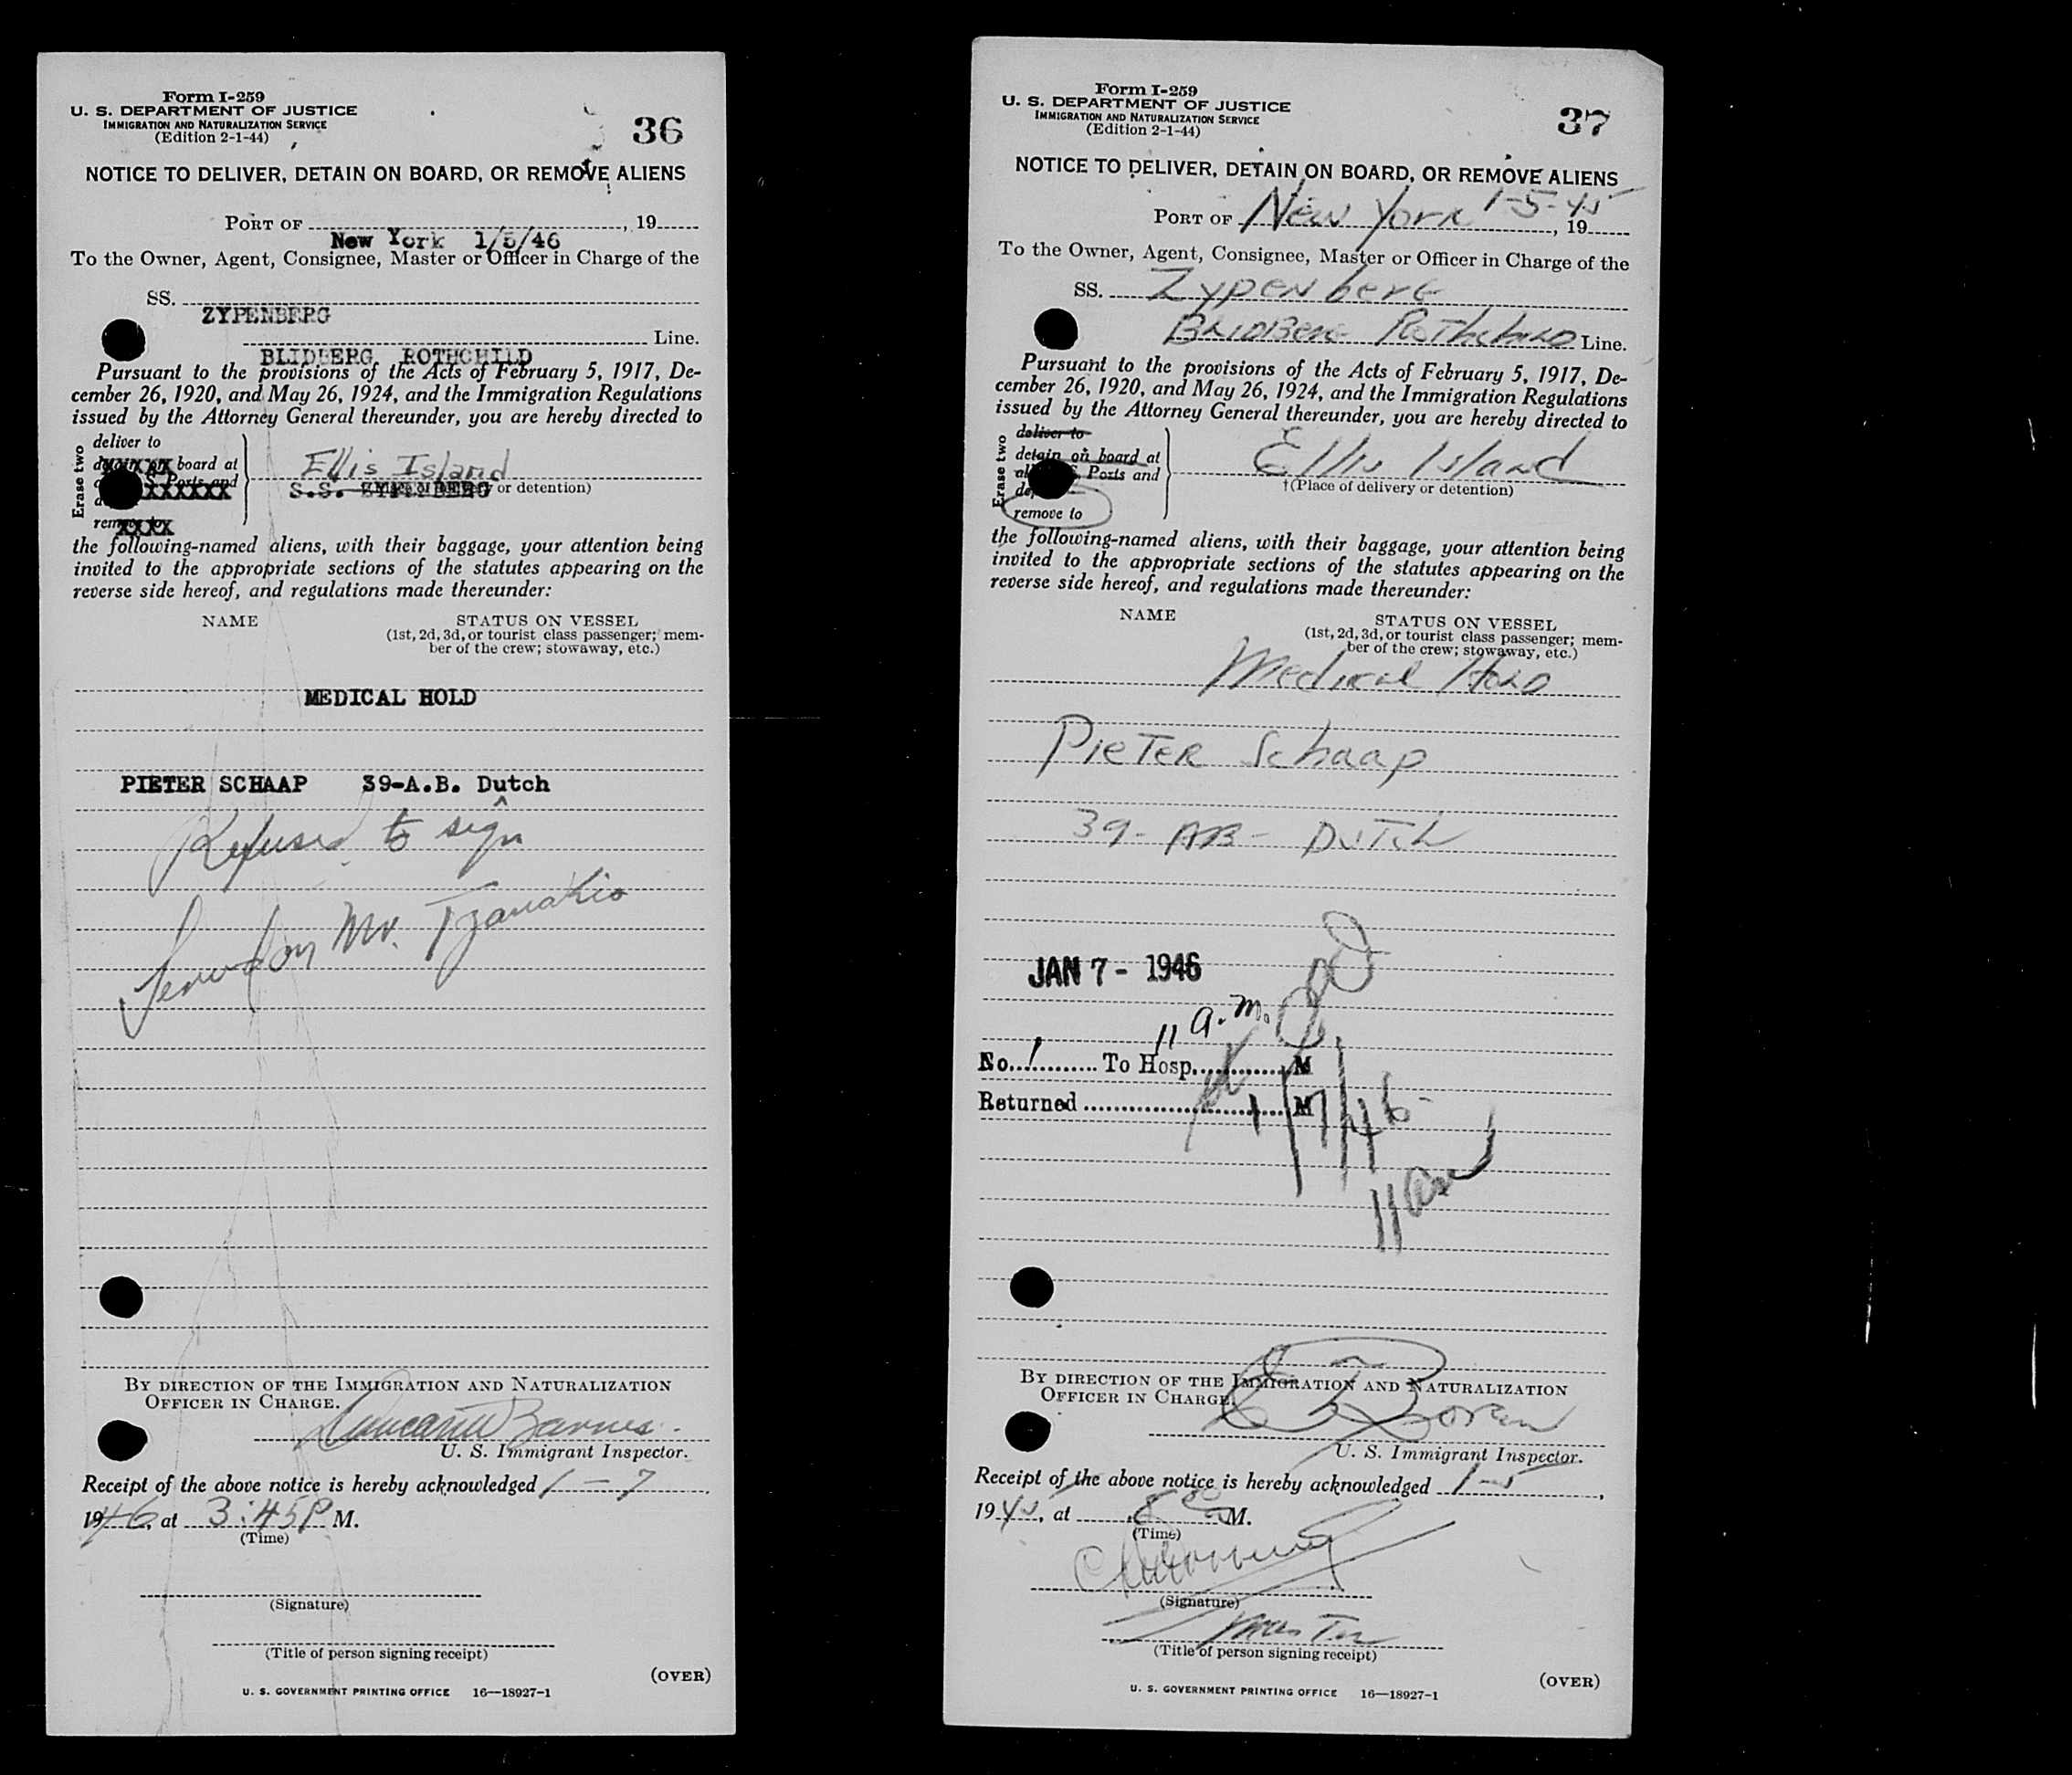 Form I-259
U. S. DEPARTMENT OF JUSTICE
IMMIGRATION AND NATURALIZATION SERVICE
(Edition 2-1-44)
36
NOTICE TO DELIVER, DETAIN ON BOARD, OR REMOVE ALIENS
PORT OF New York 1/5/46, 19
To the Owner, Agent, Consignee, Master or Officer in Charge of the
SS. ZYPENBERG
BLIDBERG ROTHCHILD Line.
Pursuant to the provisions of the Acts of February 5, 1917, De-
cember 26, 1920, and May 26, 1924, and the Immigration Regulations
issued by the Attorney General thereunder, you are hereby directed to
Erase two
deliver to
board at
Ports and
Ellis Island
S.S. ZYPENBERG or detention)
the following-named aliens, with their baggage, your attention being
invited to the appropriate sections of the statutes appearing on the
reverse side hereof, and regulations made thereunder:
NAME STATUS ON VESSEL
(1st, 2d, 3d, or tourist class passenger; mem-
ber of the crew; stowaway, etc.)
MEDICAL HOLD
PIETER SCHAAP 39-A.B. Dutch
Refused to sign
Served on Mr. Tzanakis
BY DIRECTION OF THE IMMIGRATION AND NATURALIZATION
OFFICER IN CHARGE.
Barnes
U. S. Immigrant Inspector.
Receipt of the above notice is hereby acknowledged 1-7
1946, at 3:45 P M.
(Time)
(Signature)
(Title of person signing receipt)
(OVER)
U. S. GOVERNMENT PRINTING OFFICE 16—18927-1
Form I-259
U. S. DEPARTMENT OF JUSTICE
IMMIGRATION AND NATURALIZATION SERVICE
(Edition 2-1-44)
37
NOTICE TO DELIVER, DETAIN ON BOARD, OR REMOVE ALIENS
PORT OF New York 1-5-45, 19
To the Owner, Agent, Consignee, Master or Officer in Charge of the
SS. Zypenberg
Blidberg Rothchild Line.
Pursuant to the provisions of the Acts of February 5, 1917, De-
cember 26, 1920, and May 26, 1924, and the Immigration Regulations
issued by the Attorney General thereunder, you are hereby directed to
Erase two
deliver to
detain on board at
Ports and
remove to
Ellis Island
†(Place of delivery or detention)
the following-named aliens, with their baggage, your attention being
invited to the appropriate sections of the statutes appearing on the
reverse side hereof, and regulations made thereunder:
NAME STATUS ON VESSEL
(1st, 2d, 3d, or tourist class passenger; mem-
ber of the crew; stowaway, etc.)
Medical Hold
Pieter Schaap
39- AB- Dutch
JAN 7 - 1946
11 a.m.
No. 1 To Hosp. M
Returned M
1/7/46
11 am
BY DIRECTION OF THE IMMIGRATION AND NATURALIZATION
OFFICER IN CHARGE.
U. S. Immigrant Inspector.
Receipt of the above notice is hereby acknowledged 1-5,
1945, at 8 M.
(Time)
(Signature)
Master
(Title of person signing receipt)
(OVER)
U. S. GOVERNMENT PRINTING OFFICE 16—18927-1